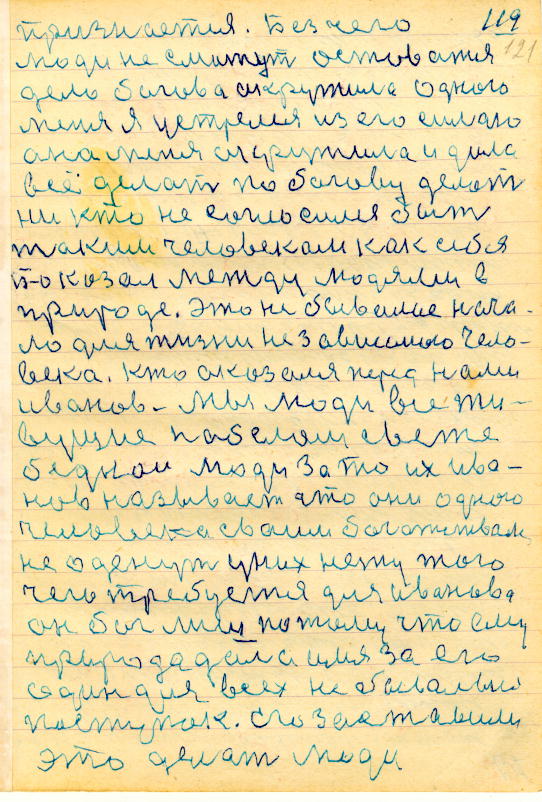 признается. Без чего 119
люди не смогут оставатя 121
дело богова окружила одного
меня я устремея из его силаю
она меня окружила и дала
всё делат по богову делат
ни кто не согласился быт
таким человекам как себя
показал между людями в
природе. Это не бывалые нача-
ло для жизни независимого чело-
века. Кто оказался перед нами
иванов – мы люди все жи-
вущие па белому свете
беднои люди за то их ива-
нов называет что они одного
человека своим богатством
не оденут у них нету того
чего требуется для иванова
он бог мий потому что ему
природа дала имя за его
один для всех небывалый
поступок. Его заставили
это делат люди